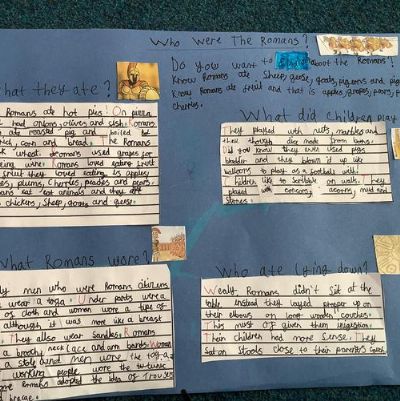 Who Were The Romans?
Do you want to about the Romans!
Know Romans ate Sheep, geese, goats, pigeons and pig
Know Romans ate fruit and that is apples, grapes, pears, p
cherries.
hat they ate?
Romans ate hot pies! On pizza
had onions, olives and fish! Romans
roasted pig and boiled
corn and bread. The Romans
wheat. Romans used grapes for
wine. Romans loved eating fruit
fruit they loved eating is apples,
plums, cherries, peaches and pears.
eat animals and they are
chickens, sheep, goats and geese.
What did children play
They played with nuts, marbles and
they though dies made from bones.
Did you know they even used pigs
bladder and they blown it up like
balloons to play as a football with!
Children like to scribble on walls. They
played with acorns, mud and
stones.
What Romans wore?
ly men who were Romans citizens
wear a toga. Under pants were a
of cloth and women wore a type of
although it was more like a breast
They also wear sandles. Romans
a broosh, neck lace and arm bands. Women
a stola and men wore the toga a
working people wore the tunic
ore Romans adopted the idea of Trouses
Who ate lying down?
Wealy Romans didn't sit at the
table instead they layed proper up on
their elbows on long wooden couches.
This must of given them indigestion.
Their children had more sense. They
Sat on stools close to their parents couch